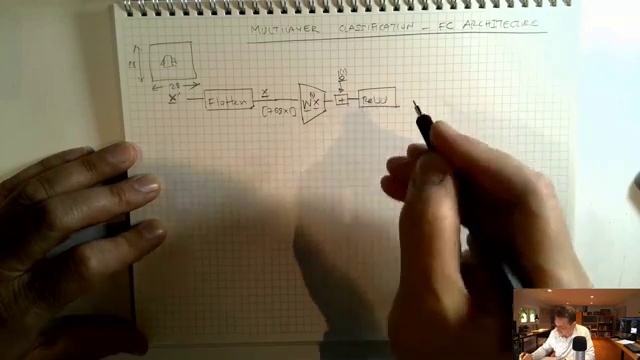 MULTILAYER CLASSIFICATION - FC ARCHITECTURE
28
28
x' Flatten x W x + ReLU